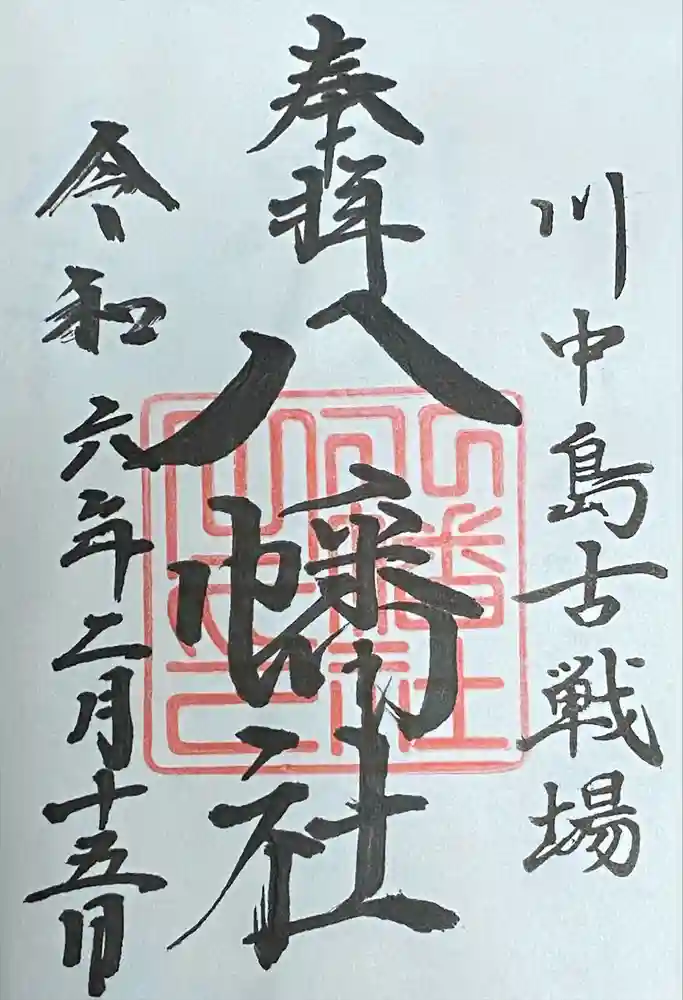 川中島古戦場
奉拝
八幡社
令和六年二月十五日